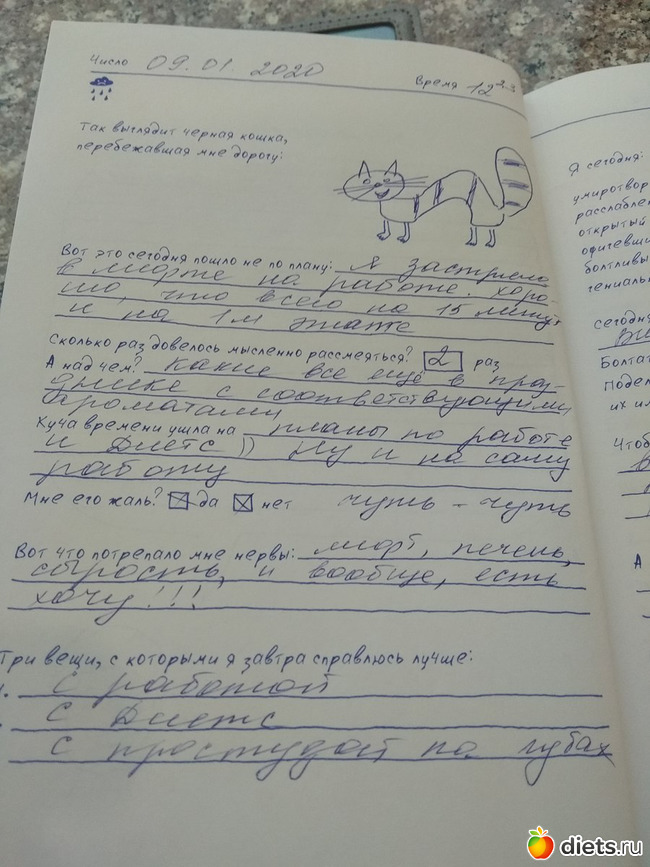 Число 09.01.2020
Время 12
Так выглядит черная кошка,
перебежавшая мне дорогу:
Вот это сегодня пошло не по плану: я застряла
в лифте на работе. хоро-
шо, что всего на 15 минут
и на 1м этаже
Сколько раз довелось мысленно рассмеяться? 2 раз
А над чем? какие все еще в праз-
днике с соответствующими
ароматами
Куча времени ушла на планы по работе
и Диетс )) Ну и на саму
работу
Мне его жаль? да нет чуть-чуть
Вот что потрепало мне нервы: лифт, печень,
сырость, и вообще, есть
хочу!!!
Три вещи, с которыми я завтра справлюсь лучше:
с работой
с Диетс
с простудой на губах
Я сегодня:
умиротвор
расслаблен
открытый
офигевши
болтливы
гениаль
сегодня
Болтат
Подел
их ил
Чтоб
А
diets.ru